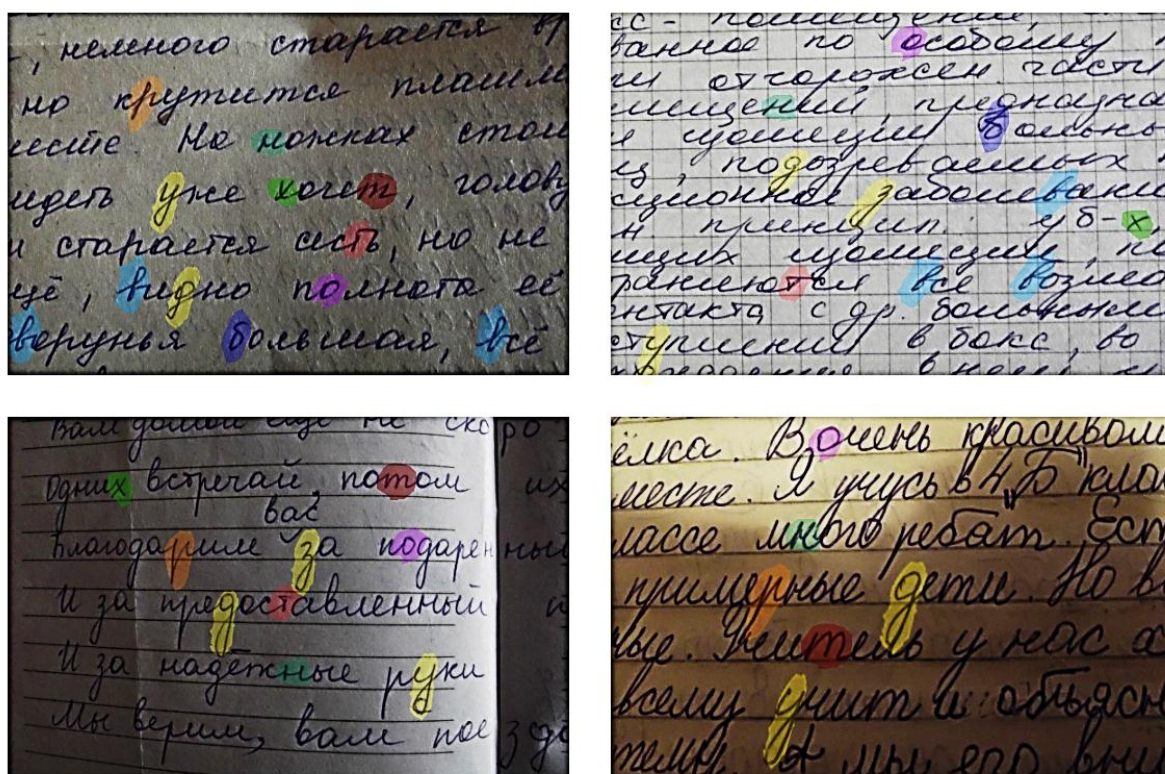 , немного старается вр
но крутится плашмя
месте. На ножках стои
идеть уже хочет, голову
и старается есть, но не
щё, видно полнота её
оверунья большая, всё
сс - помещение,
ванное по особому
ми отгорожен. части
мещений, предназна
и изоляции больны
ц, подозреваемых
кционное заболевание
н принцип. уб-х,
щих изоляции, по
раняются все возмо
нтакта с др. больными
ступлении в бокс, во
Вам домой ещё не скоро
Одних встречай, потом их
вас
Благодарим за подаренный
И за предоставленный п
И за надёжные руки
Мы верим, вам поезда
ёлка. В очень красивом
месте. Я учусь в 4 „Б" клас
лассе много ребят. Ест
примерные дети. Но в
ные. Учитель у нас х
всему учит и объясн
темы. А мы его вни